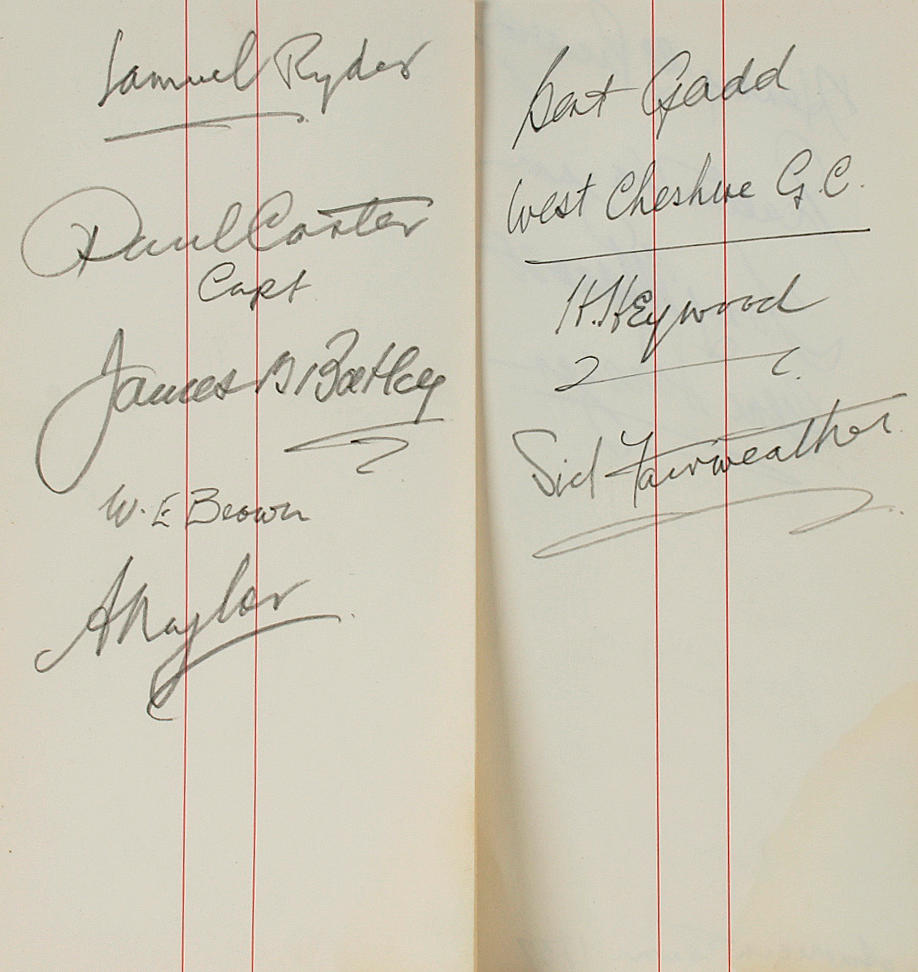 Samuel Ryder
Paul Carter
Capt
James B Batley
W. E Brown
A Naylor
Bert Gadd
West Cheshire G.C.
H. Heywood
Sid Fairweather